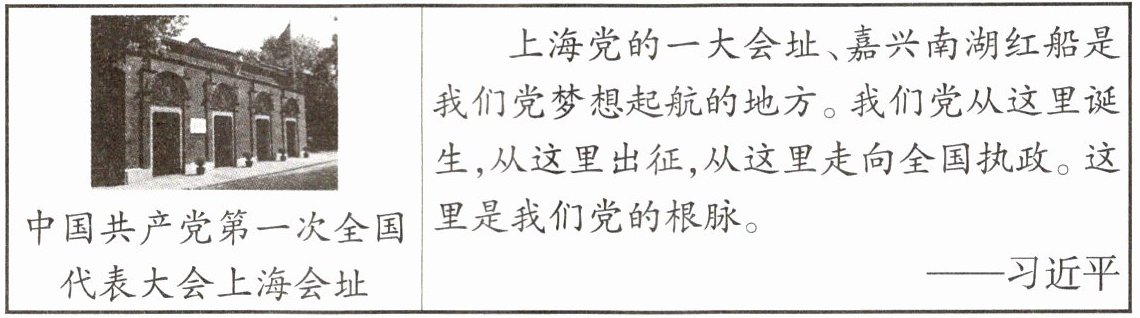 中国共产党第一次全国
代表大会上海会址
上海党的一大会址、嘉兴南湖红船是
我们党梦想起航的地方。我们党从这里诞
生,从这里出征,从这里走向全国执政。这
里是我们党的根脉。
——习近平